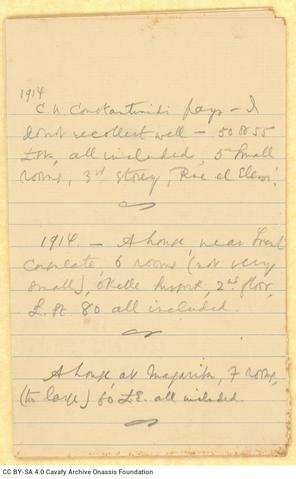 1914
C. N. Constantinidi pays – I
do not recollect well – 50 or 55
£st, all included, 5 small
rooms, 3rd storey, Rue el
1914. – A house near French
Consulate, 6 rooms (not very
small), 2nd floor,
£. st. 80 all included.
A house at Mazarita, 7 rooms,
(two large) 60 £E. all included.
CC BY-SA 4.0 Cavafy Archive Onassis Foundation